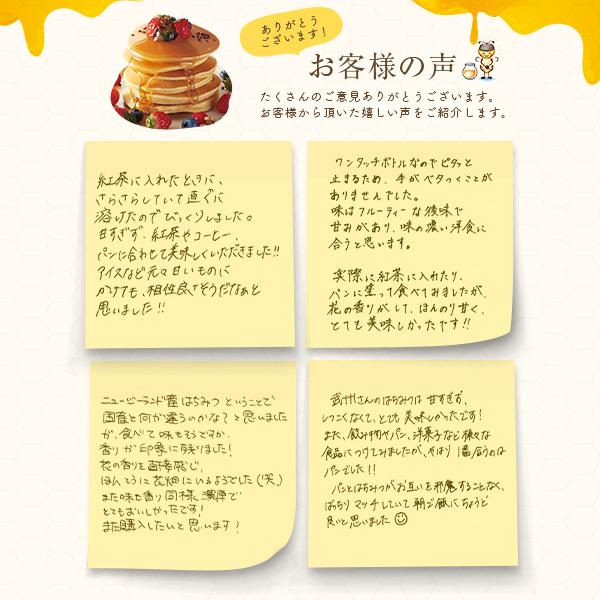 ありがとう
ございます!
お客様の声
たくさんのご意見ありがとうございます。
お客様から頂いた嬉しい声をご紹介します。
紅茶に入れたときに、
さらさらしていて直ぐに
溶けたのでびっくりしました。
甘すぎず、紅茶やコーヒー、
パンに合わせて美味しくいただきました!!
アイスなど元々甘いものに
かけても、相性良さそうだなぁと
思いました!!
ワンタッチボトルなのでピタッと
止まるため、手がベタつくことが
ありませんでした。
味はフルーティーな後味で
甘みがあり、味の濃い洋食に
合うと思います。
実際に紅茶に入れたり、
パンに塗って食べてみましたが、
花の香りがして、ほんのり甘く、
とても美味しかったです!!
ニュージーランド産はちみつということで
国産と何が違うのかな?と思いました
が、食べて味もそうですが、
香りが印象に残りました!
花の香りを直接感じ、
ほんとうに花畑にいるようでした(笑)
また味も香り同様濃厚で
とてもおいしかったです!
また購入したいと思います!
武州さんのはちみつは甘すぎず、
しつこくなくて、とても美味しかったです!
また、飲み物やパン、洋菓子など様々な
食品につけてみましたが、やはり1番合うのは
パンでした!!
パンとはちみつがお互いを邪魔することなく、
ばっちりマッチしていて朝ご飯にちょうど
良いと思いました☺